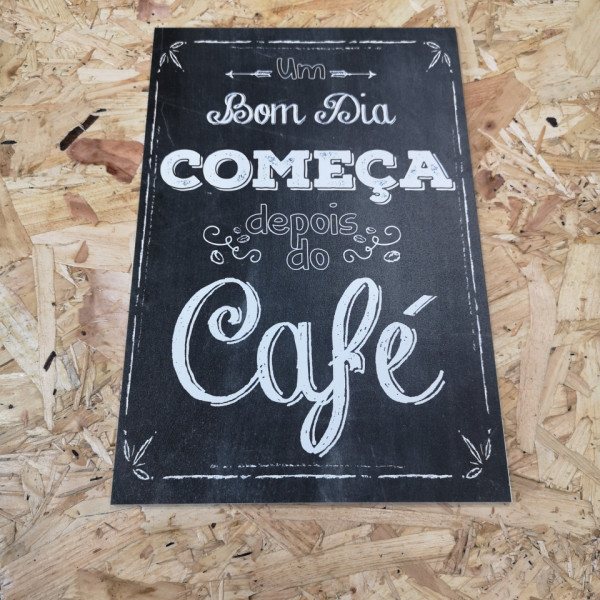 Um
Bom Dia
COMEÇA
depois
do
Café